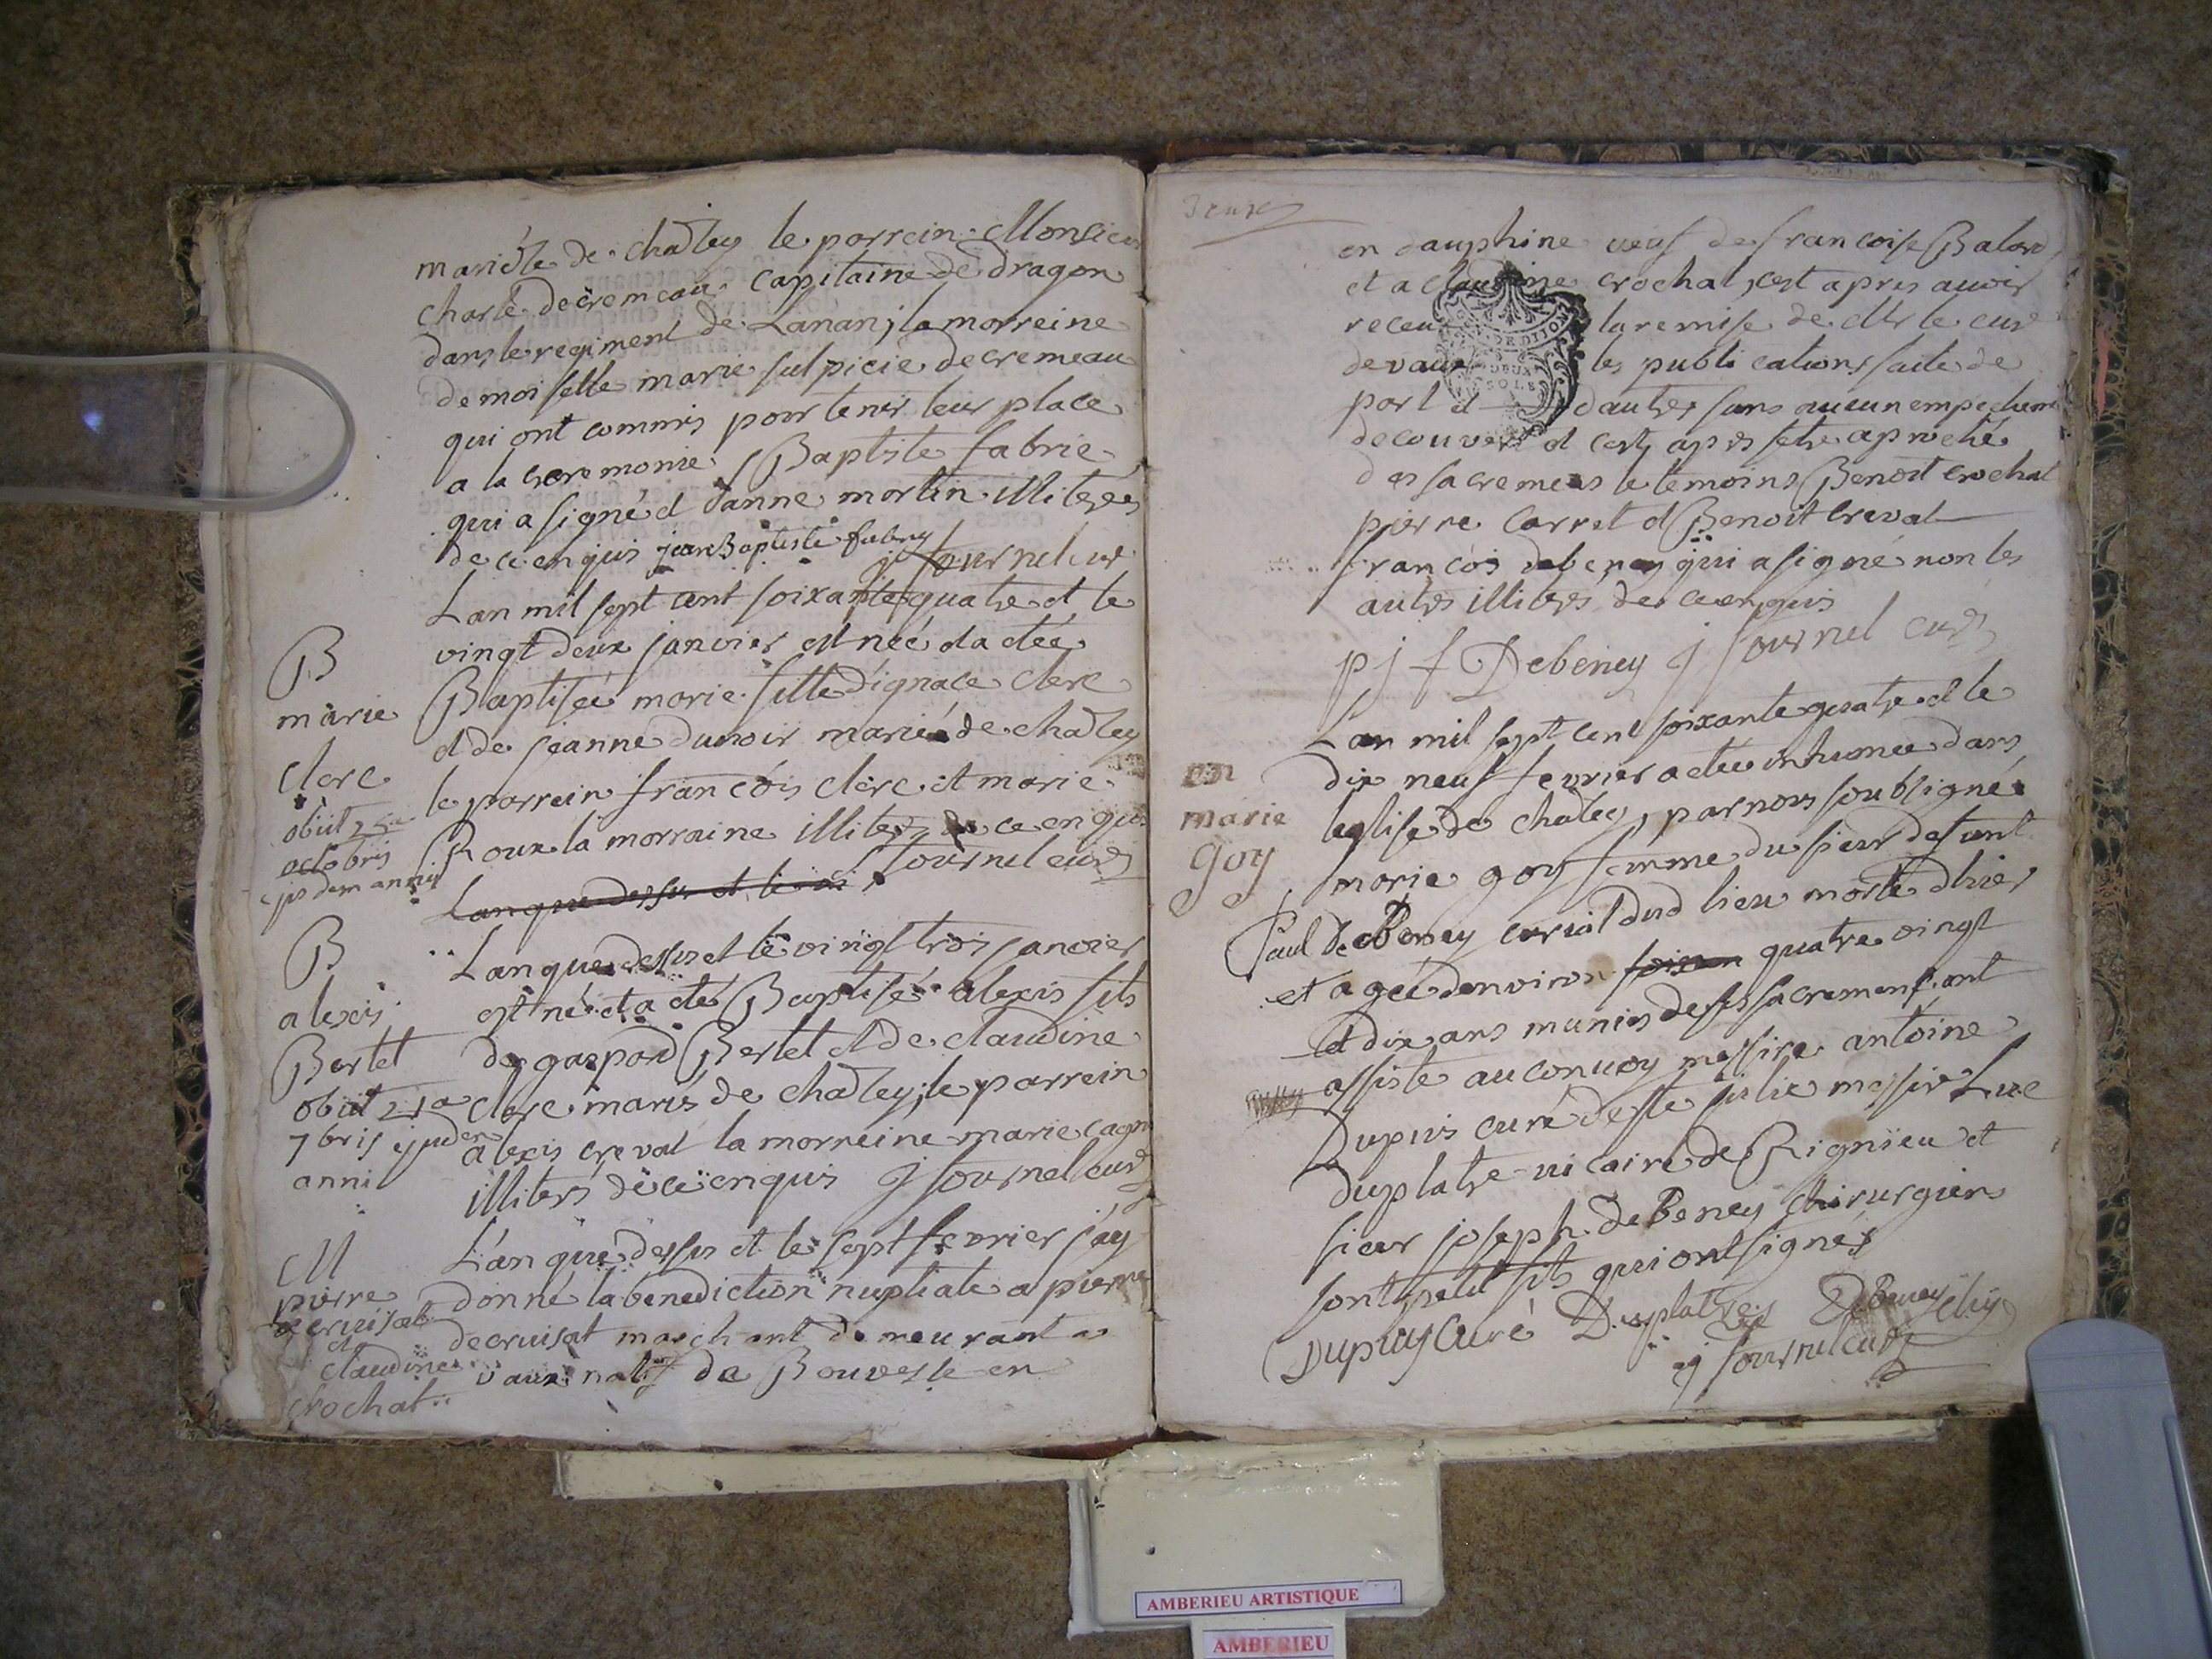 mariés de chadley le parrein Monsieur
charle decremeau capitaine de dragon
dans le regiment de Lanan; la marreine
demoiselle marie sulpicie decremeau
qui ont commis pour tenir leur place
a la ceremonie Baptiste fabrie
qui a signé et danne martin illiterés
de ce enquis jean Baptiste fabry
j fournel curé
B
marie
clerc
obiit
octobris
ejusdem anni
Lan mil sept cent soixante quatre et le
vingt deux janvier est neé et a eteé
Baptiseé marie fille d'ignace clerc
et de jeanne dunoir mariés de chadley
le parrein francois clerc et marie
Roux la marraine illiterés de ce enquis
Lan que dessus et le fournel curé
B
alexis
Bertet
obiit 21a
7bris ejusdem
anni
Lan que dessus et le vingt trois janvier
est né et a eté Baptisé alexis fils
de gaspard Bertet et de claudine
clerc mariés de chadley; le parrein
alexis creval la marreine marie cagn
illiterés de ce enquis j fournel curé
M
pierre
decruisat
et
claudine
crochat
L'an que dessus et le sept fevrier j'ay
donné la benediction nuptiale a pierre
decruisat marchant demeurant a
vaux natif de Bouvesse en
en dauphine veuf de francoise Baland
et a claudine crochat, cest apres avoir
receu la remise de Mr le curé
de vaux les publications faite de
part et dautre sans aucun empechem
decouvert et cest apres setre aproché
des sacremens le temoins Benoit crochat
pierre Carret et Benoit creval
francois debeney qui a signé non les
autres illiterés de ce enquis
p j f Debeney j fournel curé
marie
goy
Lan mil sept cent soixante quatre et le
dix neuf fevrier a eteé inhumeé dans
leglise de chadley, par nous soubsigné
marie goy femme du sieur defunt
Paul DeBeney curial dud lieu morte dhier
et ageé denviron soixan quatre vingt
et dix ans munies de ses sacremens ont
assisté au convoy messire antoine
Dupuis curé de ste julie messire Luc
duplatre vicaire de Rignieu et
sieur joseph deBeney chirurgien
sont petit fils qui ont signés
Dupuis Curé Duplatre DeBeney chir
j fournel curé
DEUX
SOLS
AMBERIEU ARTISTIQUE
AMBERIEU